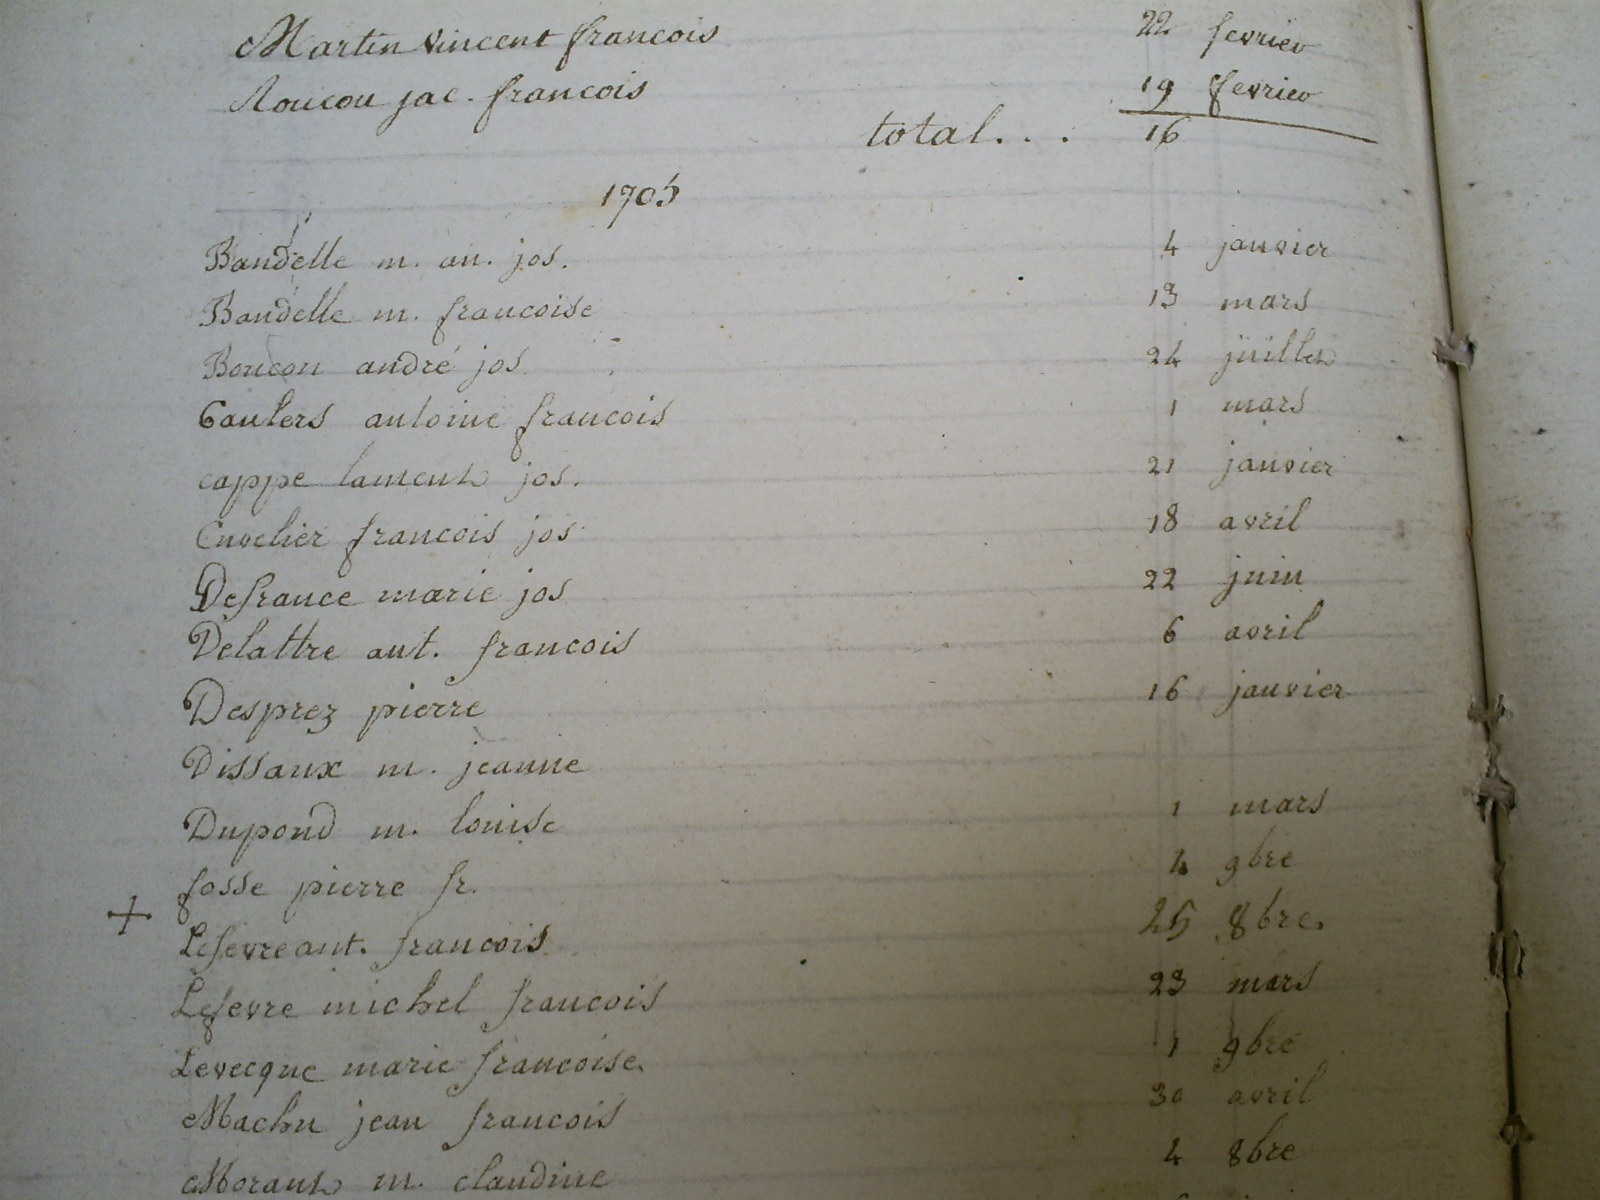 Martin vincent francois 22 fevrier
Roucou jac. francois 19 fevrier
total... 16
1705
Baudelle m. an. jos. 4 janvier
Baudelle m. francoise 13 mars
Boucou andré jos 24 juillet
Caulers antoine francois 1 mars
cappe laurent jos. 21 janvier
Cuvelier francois jos 18 avril
Defrance marie jos 22 juin
Delattre ant. francois 6 avril
Desprez pierre 16 janvier
Dissaux m. jeanne
Dupond m. louise 1 mars
fosse pierre fr. 4 9bre
+ Lefevre ant. francois 25 8bre.
Lefevre michel francois 23 mars
Levecque marie francoise. 1 9bre
Machu jean francois 30 avril
Morant m. claudine 4 8bre